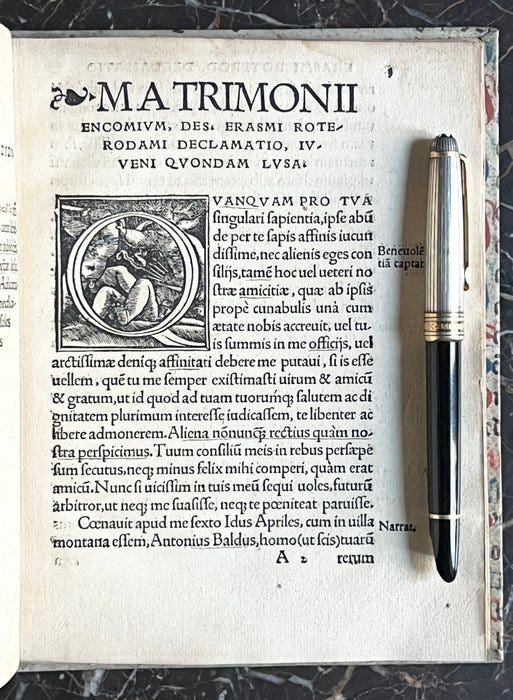 MATRIMONII
ENCOMIVM, DES. ERASMI ROTE-
RODAMI DECLAMATIO, IV-
VENI QVONDAM LVSA.
QVANQVAM PRO TVA
singulari sapientia, ipse abũ
de per te sapis affinis iucun
dissime, nec alienis eges con
silijs, tamẽ hoc uel ueteri no
stræ amicitiæ, quæ ab ipsis
propè cunabulis unà cum
ætate nobis accreuit, uel tu-
is summis in me officijs, uel
arctissimæ deniq; affinitati debere me putaui, si is esse
uellem, quẽ tu me semper existimasti uirum & amicũ
& gratum, ut id quod ad tuam tuorumq; salutem ac di
gnitatem plurimum interesse iudicassem, te libenter ac
libere admonerem. Aliena nõnunq̃; rectius quàm no-
stra perspicimus. Tuum consiliũ meis in rebus persæpe
sum secutus, neq; minus felix mihi comperi, quàm erat
amicũ. Nunc si uicissim in tuis meũ sequi uoles, futurũ
arbitror, ut neq; me suasisse, neq; te pœniteat paruisse.
Cœnauit apud me sexto Idus Apriles, cum in uilla
montana essem, Antonius Baldus, homo (ut scis) tuarũ
A 2 rerum
Beneuolẽ
tiã captat
Narrat.